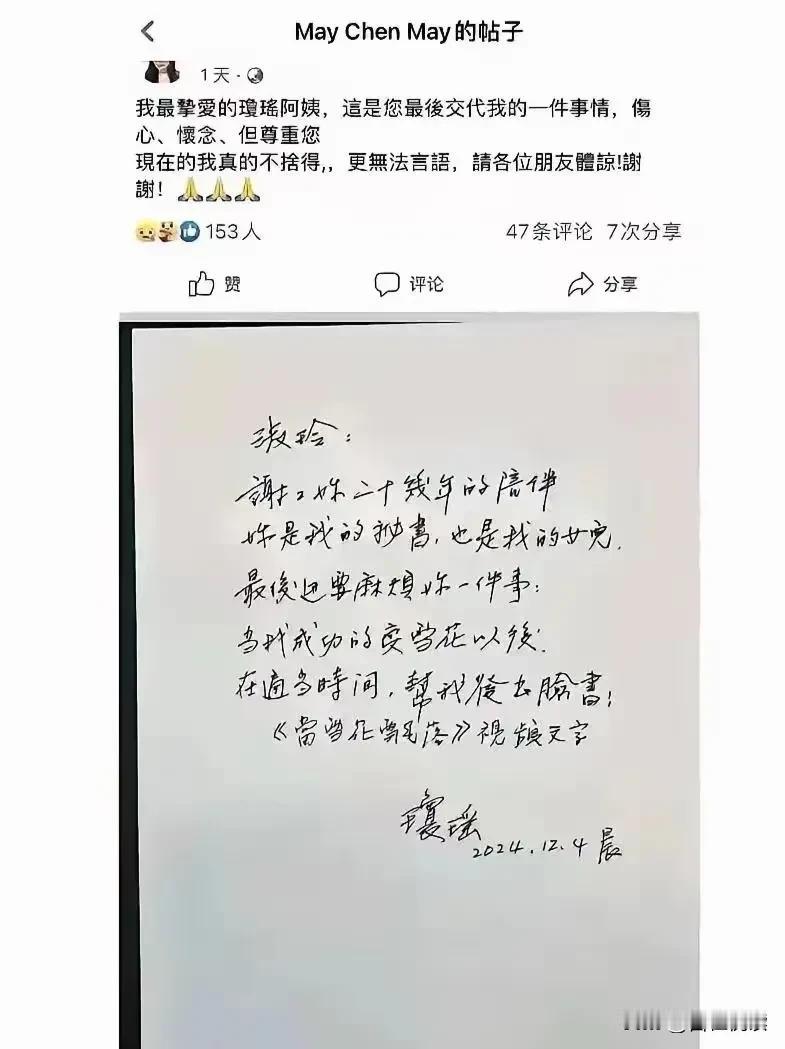 May Chen May的帖子
1天·
我最摯愛的瓊瑤阿姨，這是您最後交代我的一件事情，傷
心、懷念、但尊重您
現在的我真的不捨得,，更無法言語，請各位朋友體諒!謝
謝！🙏🙏🙏
153人
47条评论 7次分享
赞 评论 分享
淑玲：
謝謝妳二十幾年的陪伴
妳是我的秘書，也是我的女兒.
最後还要麻煩妳一件事：
当我成功的变雪花以後.
在適当時間，幫我發出臉書；
《當雪花飄落》視頻文字
瓊瑤
2024.12.4 晨